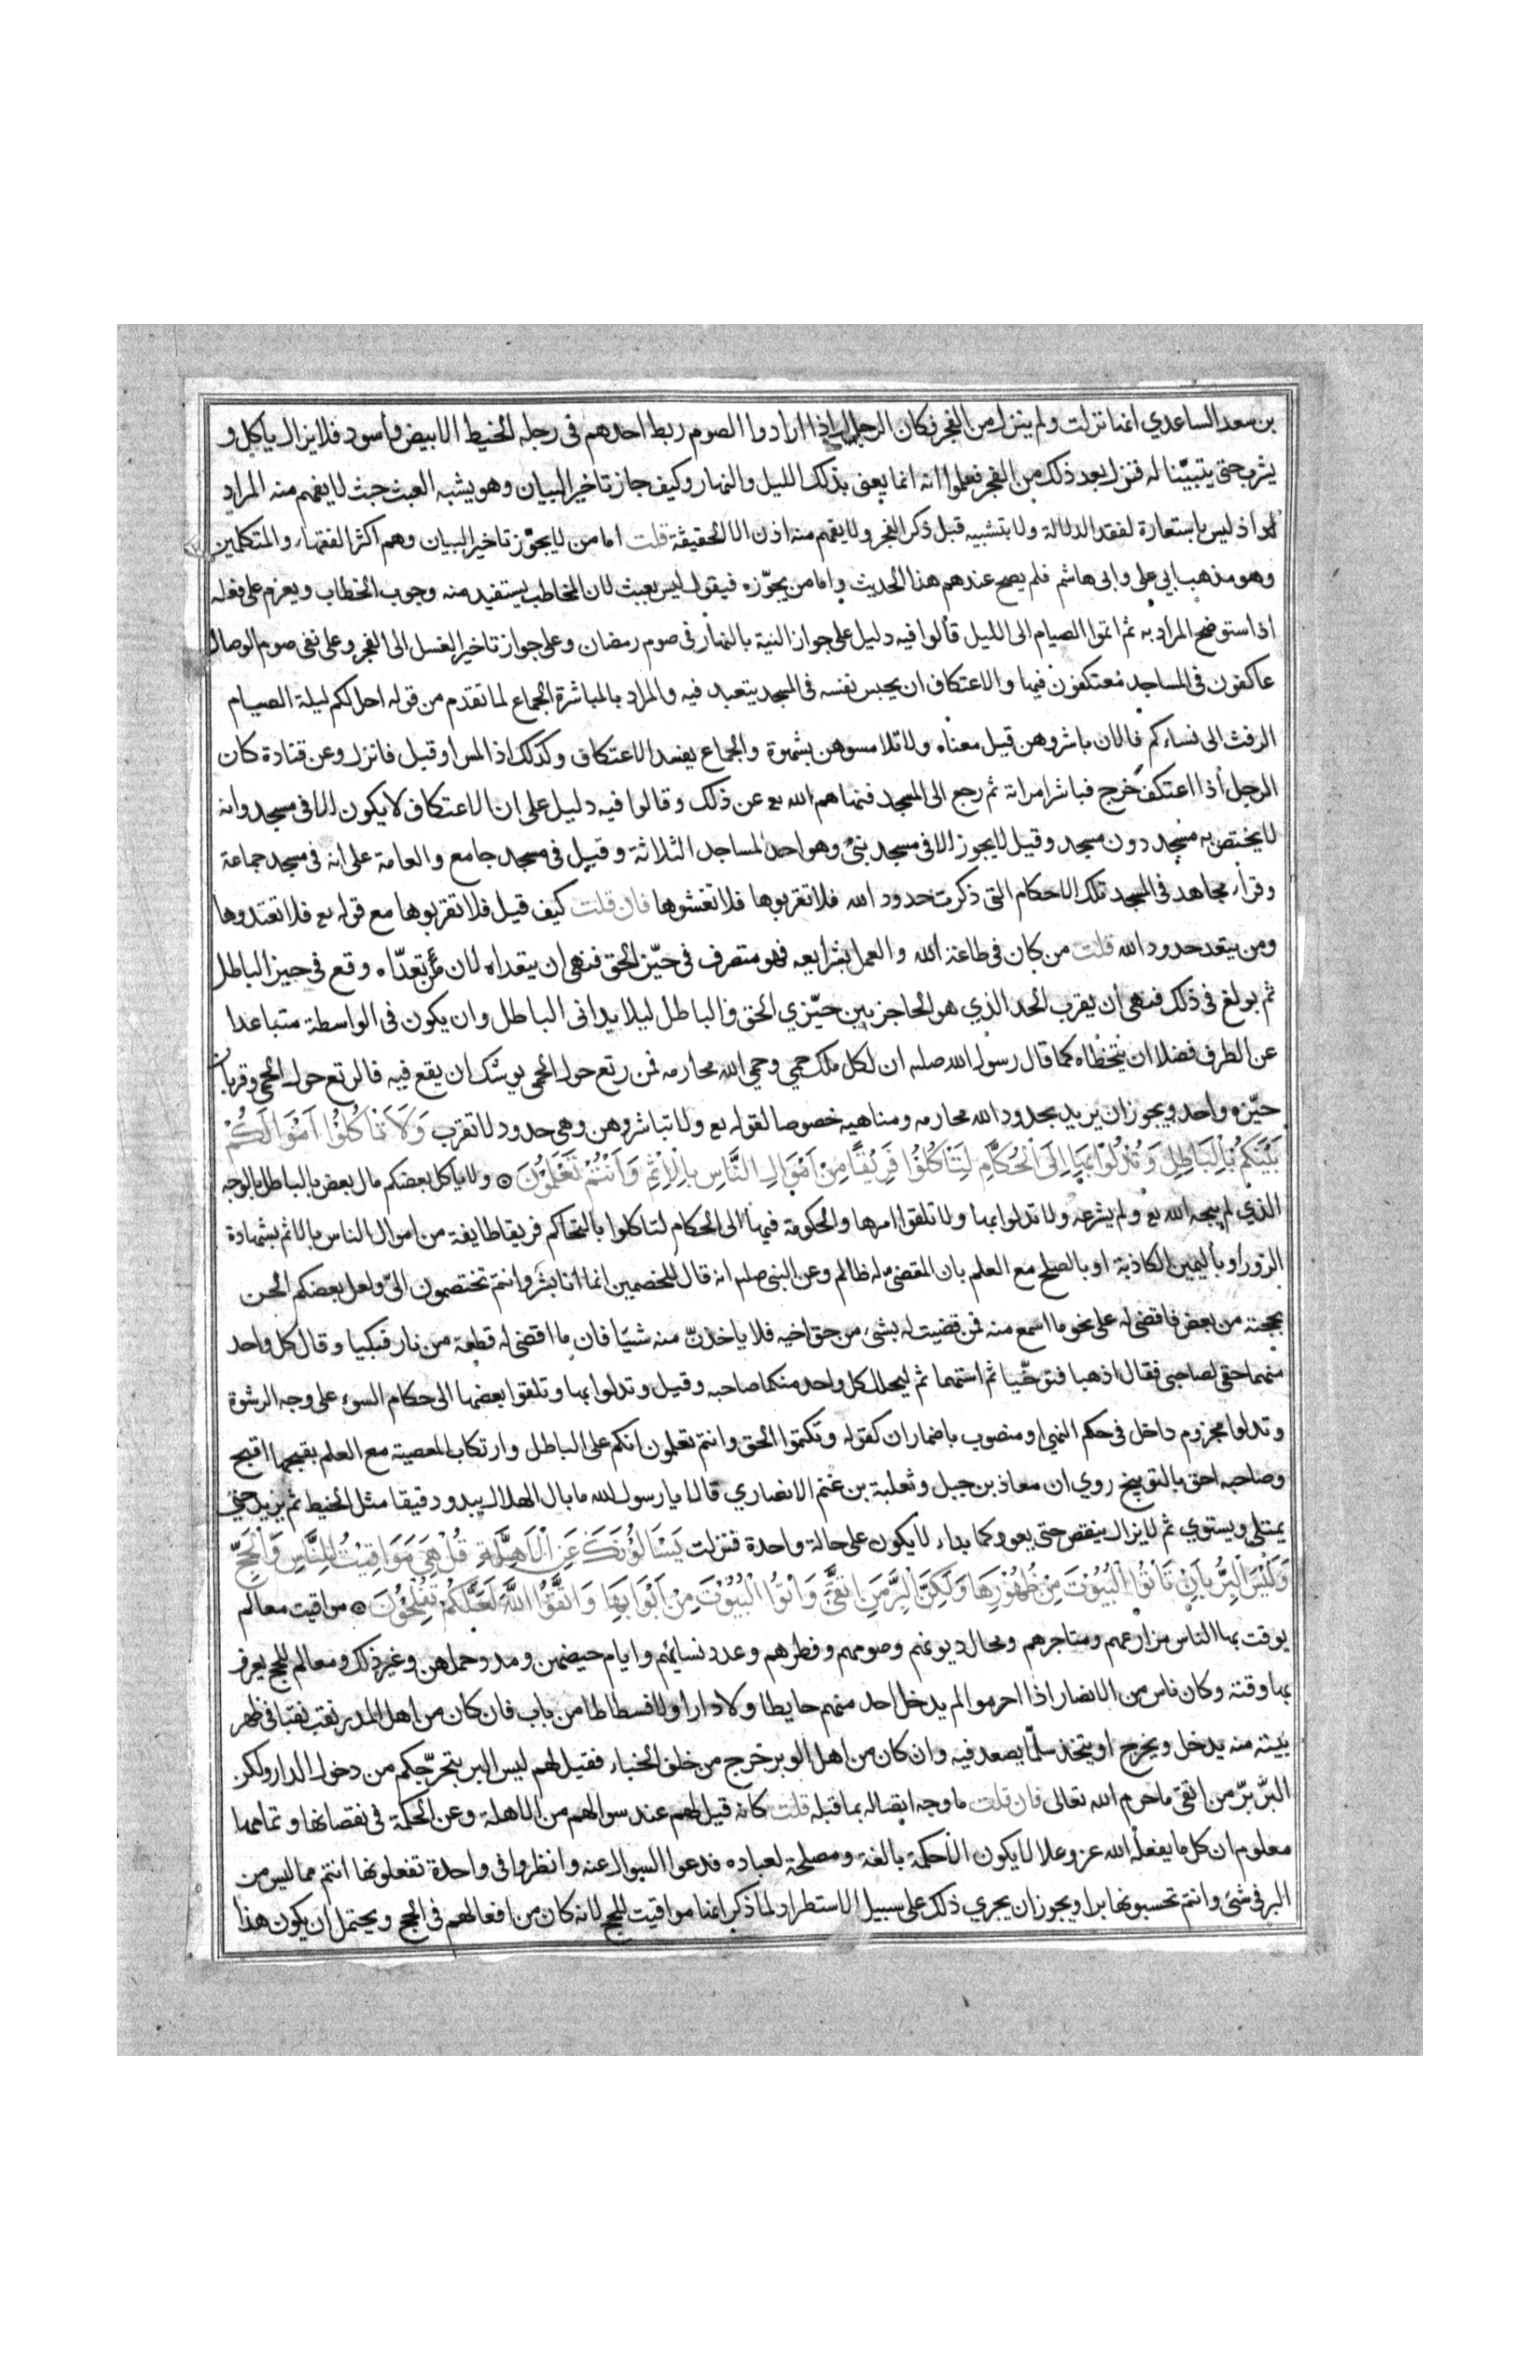 بن سعد الساعدي انها نزلت ولم ينزل من الفجر فكان الرجال اذا ارادوا الصوم ربط احدهم فى رجله الخيط الابيض والاسود فلا يزال ياكل و
يشرب حتى يتبيّنا له فنزل بعد ذلك من الفجر فعلموا انه انما يعنى بذلك الليل والنهار وكيف جاز تاخير البيان وهو يشبه العبث حيث لا يفهم منه المراد
اذ ليس باستعارة لفقد الدلالة ولا بتشبيه قبل ذكر الفجر ولا يفهم منه اذن الا الحقيقة قلت اما من لا يجوّز تاخير البيان وهم اكثر الفقهاء والمتكلمين
وهو مذهب ابي على وابى هاشم فلم يصح عندهم هذا الحديث واما من يجوّزه فيقول ليس بعبث لان المخاطب يستفيد منه وجوب الخطاب ويعزم على فعله
اذا استوضح المراد به ثم اتموا الصيام الى الليل قالوا فيه دليل على جواز النية بالنهار فى صوم رمضان وعلى جواز تاخير الغسل الى الفجر وعلى نفى صوم الوصال
عاكفون فى المساجد معتكفون فيها والاعتكاف ان يحبس نفسه فى المسجد يتعبد فيه والمراد بالمباشرة الجماع لما تقدم من قوله احل لكم ليلة الصيام
الرفث الى نساءكم فالان باشروهن قيل معناه ولا تلامسوهن بشهوة والجماع يفسد الاعتكاف وكذلك اذا لمس او قبل فانزل وعن قتادة كان
الرجل اذا اعتكف خرج فباشر امراته ثم رجع الى المسجد فنهاهم الله تع عن ذلك وقالوا فيه دليل على ان الاعتكاف لا يكون الا فى مسجد وانه
لا يختص به مسجد دون مسجد وقيل لا يجوز الا فى مسجد بنى وهو احد المساجد الثلاثة وقيل فى مسجد جامع والعامة على انه فى مسجد جماعة
وقراء مجاهد فى المسجد تلك الاحكام التى ذكرت حدود الله فلا تقربوها فلا تغشوها فان قلت كيف قيل فلا تقربوها مع قوله تع فلا تعتدوها
ومن يتعد حدود الله قلت من كان فى طاعة الله والعمل بشرايعه فهو متصرف فى حيّز الحق فنهى ان يتعداه لان من تعدّاه وقع فى حيز الباطل
ثم بولغ فى ذلك فنهى ان يقرب الحد الذي هو الحاجز بين حيّزي الحق والباطل ليلا يدانى الباطل وان يكون فى الواسطة متباعدا
عن الطرف فضلا ان يتخطاه كما قال رسول الله صلم ان لكل ملك حمي وحمي الله محارمه فمن رتع حول الحمى يوشك ان يقع فيه فالرتع حول الحمى وقربان
حيّزه واحد ويجوز ان يريد بحدود الله محارمه ومناهيه خصوصا لقوله تع ولا تباشروهن وهى حدود لا تقرب وَلَا تَأْكُلُوا اَمْوَالَكُمْ
بَيْنَكُمْ بِالْبَاطِلِ وَتُدْلُوا بِهَا اِلَى الْحُكَّامِ لِتَأْكُلُوا فَرِيْقًا مِنْ اَمْوَالِ النَّاسِ بِالْاِثْمِ وَاَنْتُمْ تَعْلَمُوْنَ ۞ ولا ياكل بعضكم مال بعض بالباطل بالوجه
الذي لم يبحه الله تع ولم يشرعه ولا تدلوا بها ولا تلقوا امرها والحكومة فيها الى الحكام لتاكلوا بالتحاكم فريقا طايفة من اموال الناس بالاثم بشهادة
الزور او باليمين الكاذبة او بالصلح مع العلم بان المقضى له ظالم وعن النبى صلم انه قال للخصمين انما انا بشر وانتم تختصمون الىّ ولعل بعضكم الحن
بحجته من بعض فاقضى له على نحو ما اسمع منه فمن قضيت له بشئ من حق اخيه فلا ياخذنّ منه شيئا فان ما اقضى له قطعة من نار فبكيا وقال كل واحد
منهما حقى لصاحبى فقال اذهبا فتوخّيا ثم استهما ثم ليحلل كل واحد منكما صاحبه وقيل وتدلوا بها وتلقوا بعضها الى حكام السوء على وجه الرشوة
وتدلوا مجزوم داخل فى حكم النهي او منصوب باضمار ان كقوله وتكتموا الحق وانتم تعلمون انكم على الباطل وارتكاب المعصية مع العلم بقبحها اقبح
وصاحبه احق بالتوبيخ روي ان معاذ بن جبل وثعلبة بن غنم الانصاري قالا يا رسول الله ما بال الهلال يبدو دقيقا مثل الخيط ثم يزيد حتى
يمتلى ويستوي ثم لا يزال ينقص حتى يعود كما بداء لا يكون على حالة واحدة فنزلت يَسْاَلُوْنَكَ عَنِ الْاَهِلَّةِ قُلْ هِيَ مَوَاقِيْتُ لِلنَّاسِ وَالْحَجِّ
وَلَيْسَ الْبِرُّ بِاَنْ تَاْتُوا الْبُيُوْتَ مِنْ ظُهُوْرِهَا وَلَكِنَّ الْبِرَّ مَنِ اتَّقَى وَاْتُوا الْبُيُوْتَ مِنْ اَبْوَابِهَا وَاتَّقُوا اللَّهَ لَعَلَّكُمْ تُفْلِحُوْنَ ۞ مواقيت معالم
يوقت بها الناس مزارعهم ومتاجرهم ومحال ديونهم وصومهم وفطرهم وعدد نسائهم وايام حيضهن ومدد حملهن وغير ذلك ومعالم للحج يعرف
بها وقته وكان ناس من الانصار اذا احرموا لم يدخل احد منهم حايطا ولا دارا ولا فسطاطا من باب فان كان من اهل المدر نقب نقبا فى ظهر
بيته منه يدخل ويخرج او يتخذ سلّما يصعد فيه وان كان من اهل الوبر خرج من خلف الخباء فقيل لهم ليس البر بتحرّجكم من دخول الدار ولكن
البرّ برّ من اتقى ما حرم الله تعالى فان قلت ما وجه اتصاله بما قبله قلت كانه قيل لهم عند سوالهم من الاهلة وعن الحكمة فى نقصانها وتمامها
معلوم ان كل ما يفعله الله عز وعلا لا يكون الا حكمة بالغة ومصلحة لعباده فدعوا السوال عنه وانظروا فى واحدة تفعلونها انتم مما ليس من
البر فى شئ وانتم تحسبونها برا ويجوز ان يجري ذلك على سبيل الاستطراد لما ذكر انها مواقيت للحج لانه كان من افعالهم فى الحج ويحتمل ان يكون هذا